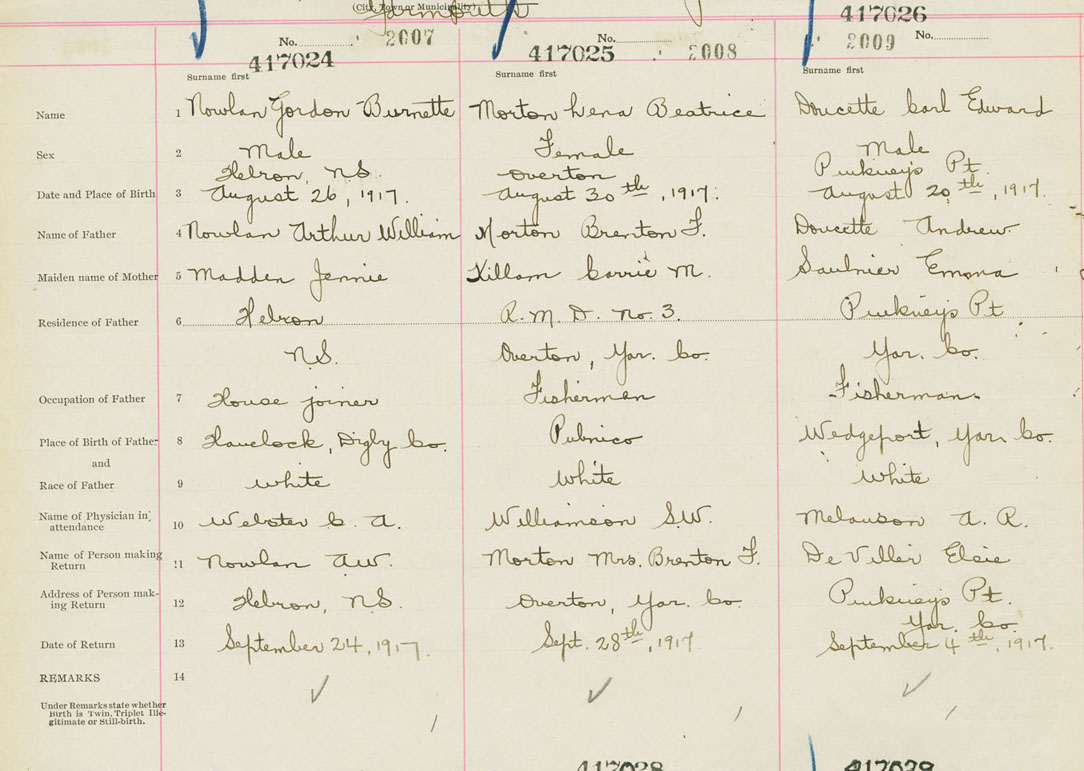 (City, Town or Municipality)
Yarmouth
No. 2007
417024
No. 2008
417025
417026
2009 No.
Surname first
Surname first
Surname first
Name 1 Nowlan Gordon Burnette Morton Lena Beatrice Doucette Carl Edward
Sex 2 Male Female Male
Hebron, N.S. Overton Pinkney's Pt.
Date and Place of Birth 3 August 26, 1917. August 30th, 1917. August 20th, 1917.
Name of Father 4 Nowlan Arthur William Morton Brenton F. Doucette Andrew
Maiden name of Mother 5 Madden Jennie Killam Carrie M. Saulnier Emma
Residence of Father 6 Hebron R.M.D. No. 3. Pinkney's Pt
N.S. Overton, Yar. Co. Yar. Co.
Occupation of Father 7 House joiner Fisherman Fisherman.
Place of Birth of Father 8 Havelock, Digby Co. Pubnico Wedgeport, Yar. Co.
and
Race of Father 9 White White White
Name of Physician in attendance 10 Webster C. A. Williamson S.W. Melanson A. R.
Name of Person making Return 11 Nowlan A.W. Morton Mrs. Brenton F. De Viller Elsie
Address of Person making Return 12 Hebron, N.S. Overton, Yar. Co. Pinkney's Pt.
Yar. Co.
Date of Return 13 September 24, 1917. Sept. 28th, 1917. September 4th, 1917.
REMARKS 14
Under Remarks state whether
Birth is Twin, Triplet Ille-
gitimate or Still-birth.
417028 417029